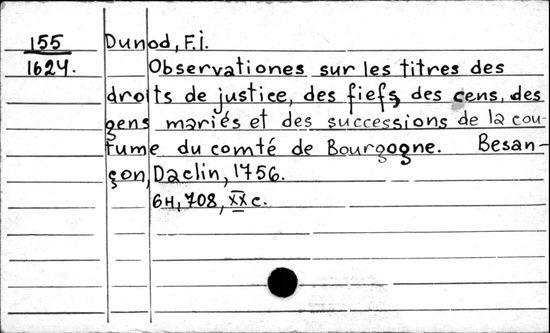 155 Dunod, F.i.
1624. Observationes sur les titres des
droits de justice, des fiefs, des cens, des
gens mariés et des successions de la cou-
tume du comté de Bourgogne. Besan-
çon, Daclin, 1756.
6H, 708, XX c.